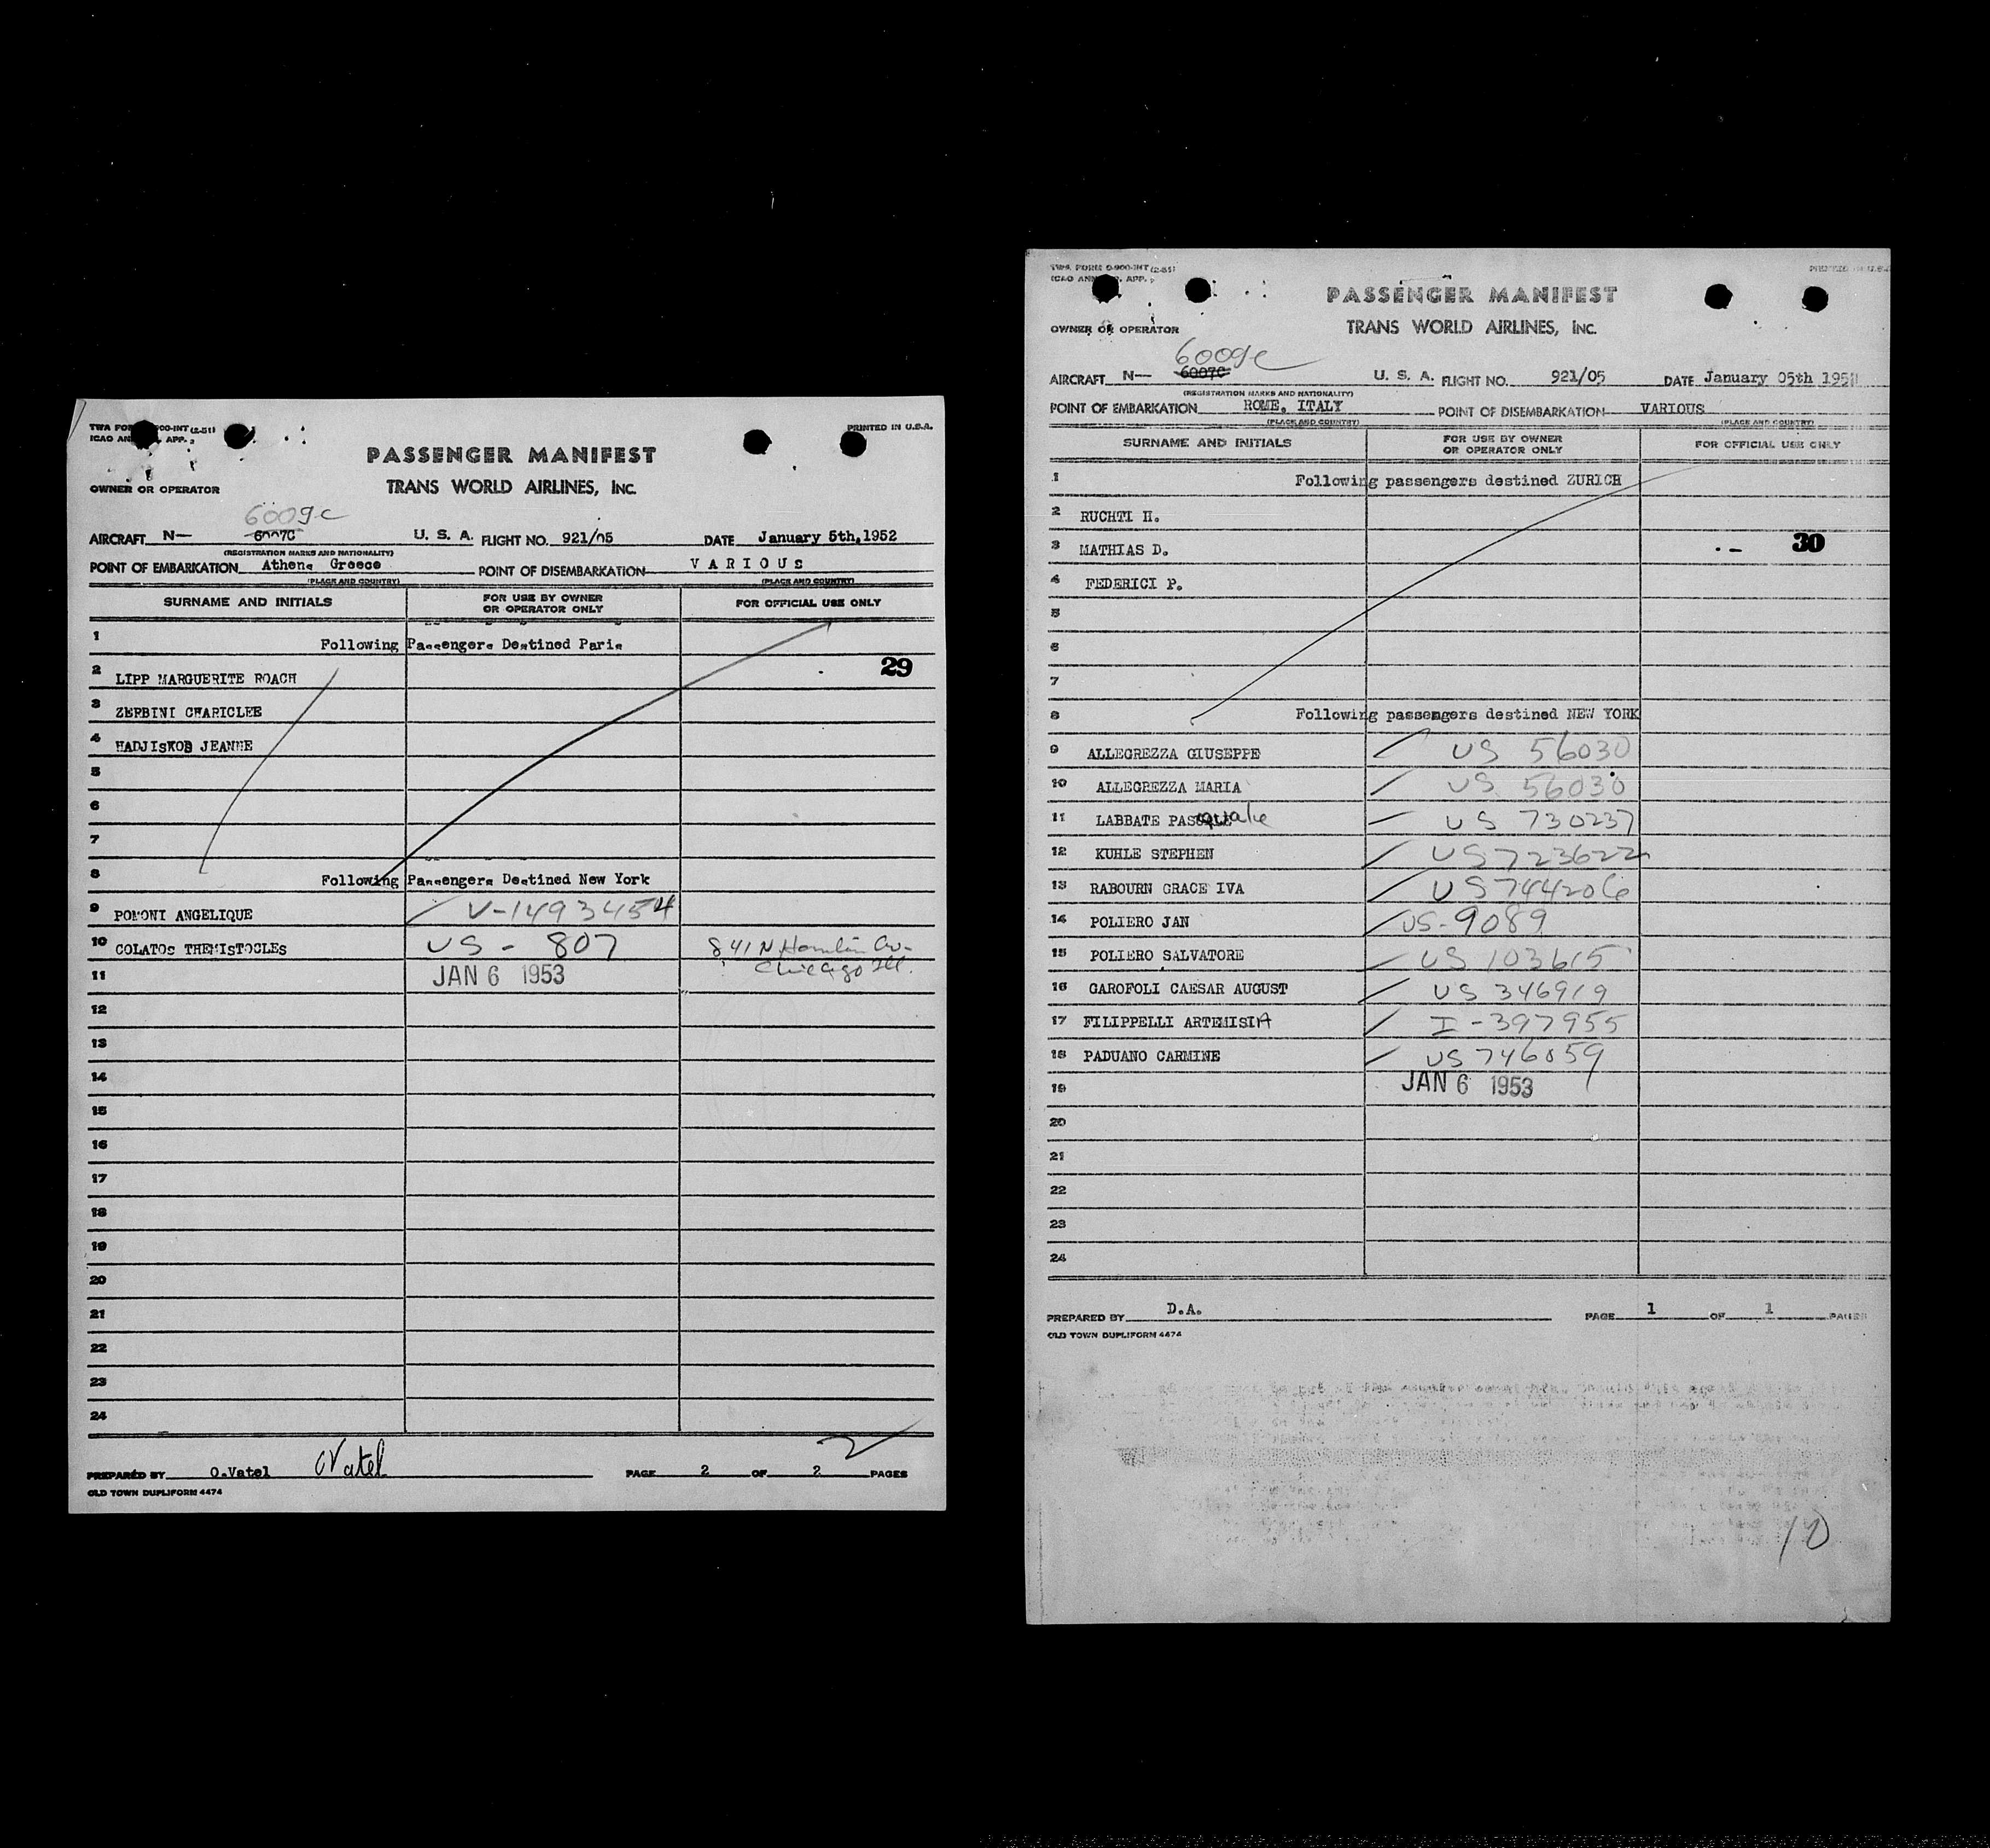 PASSENGER MANIFEST
TRANS WORLD AIRLINES, INC.
PRINTED IN U.S.A.
OWNER OR OPERATOR
6009C
AIRCRAFT N— 6007C U. S. A. FLIGHT NO. 921/05 DATE January 5th, 1952
(REGISTRATION MARKS AND NATIONALITY)
POINT OF EMBARKATION Athens Greece POINT OF DISEMBARKATION VARIOUS
(PLACE AND COUNTRY) (PLACE AND COUNTRY)
SURNAME AND INITIALS FOR USE BY OWNER OR OPERATOR ONLY FOR OFFICIAL USE ONLY
1 Following Passengers Destined Paris
2 LIPP MARGUERITE ROACH 29
3 ZERBINI CHARICLEE
4 HADJISKOB JEANNE
5
6
7
8 Following Passengers Destined New York
9 POMONI ANGELIQUE V-1493454
10 COLATOS THEMISTOCLES US - 807 841 N. Hamlin Av-
11 JAN 6 1953 Chicago Ill.
12
13
14
15
16
17
18
19
20
21
22
23
24
2
PREPARED BY O.Vatel OVatel PAGE 2 OF 2 PAGES
OLD TOWN DUPLIFORM 4474
TWA FORM O-900-INT (2-51)
PASSENGER MANIFEST
TRANS WORLD AIRLINES, INC.
OWNER OR OPERATOR
6009C
AIRCRAFT N— 6007C U. S. A. FLIGHT NO. 921/05 DATE January 05th 195
(REGISTRATION MARKS AND NATIONALITY)
POINT OF EMBARKATION ROME, ITALY POINT OF DISEMBARKATION VARIOUS
(PLACE AND COUNTRY) (PLACE AND COUNTRY)
SURNAME AND INITIALS FOR USE BY OWNER OR OPERATOR ONLY FOR OFFICIAL USE ONLY
1 Following passengers destined ZURICH
2 RUCHTI H.
3 MATHIAS D. 30
4 FEDERICI P.
5
6
7
8 Following passengers destined NEW YORK
9 ALLEGREZZA GIUSEPPE US 56030
10 ALLEGREZZA MARIA US 56030
11 LABBATE PASquale US 730237
12 KUHLE STEPHEN US 723622
13 RABOURN GRACE IVA US 744206
14 POLIERO JAN US-9089
15 POLIERO SALVATORE US 103615
16 GAROFOLI CAESAR AUGUST US 346919
17 FILIPPELLI ARTEMISIA I-397955
18 PADUANO CARMINE US 746059
19 JAN 6 1953
20
21
22
23
24
PREPARED BY D.A. PAGE 1 OF 1 PAGES
OLD TOWN DUPLIFORM 4474
10